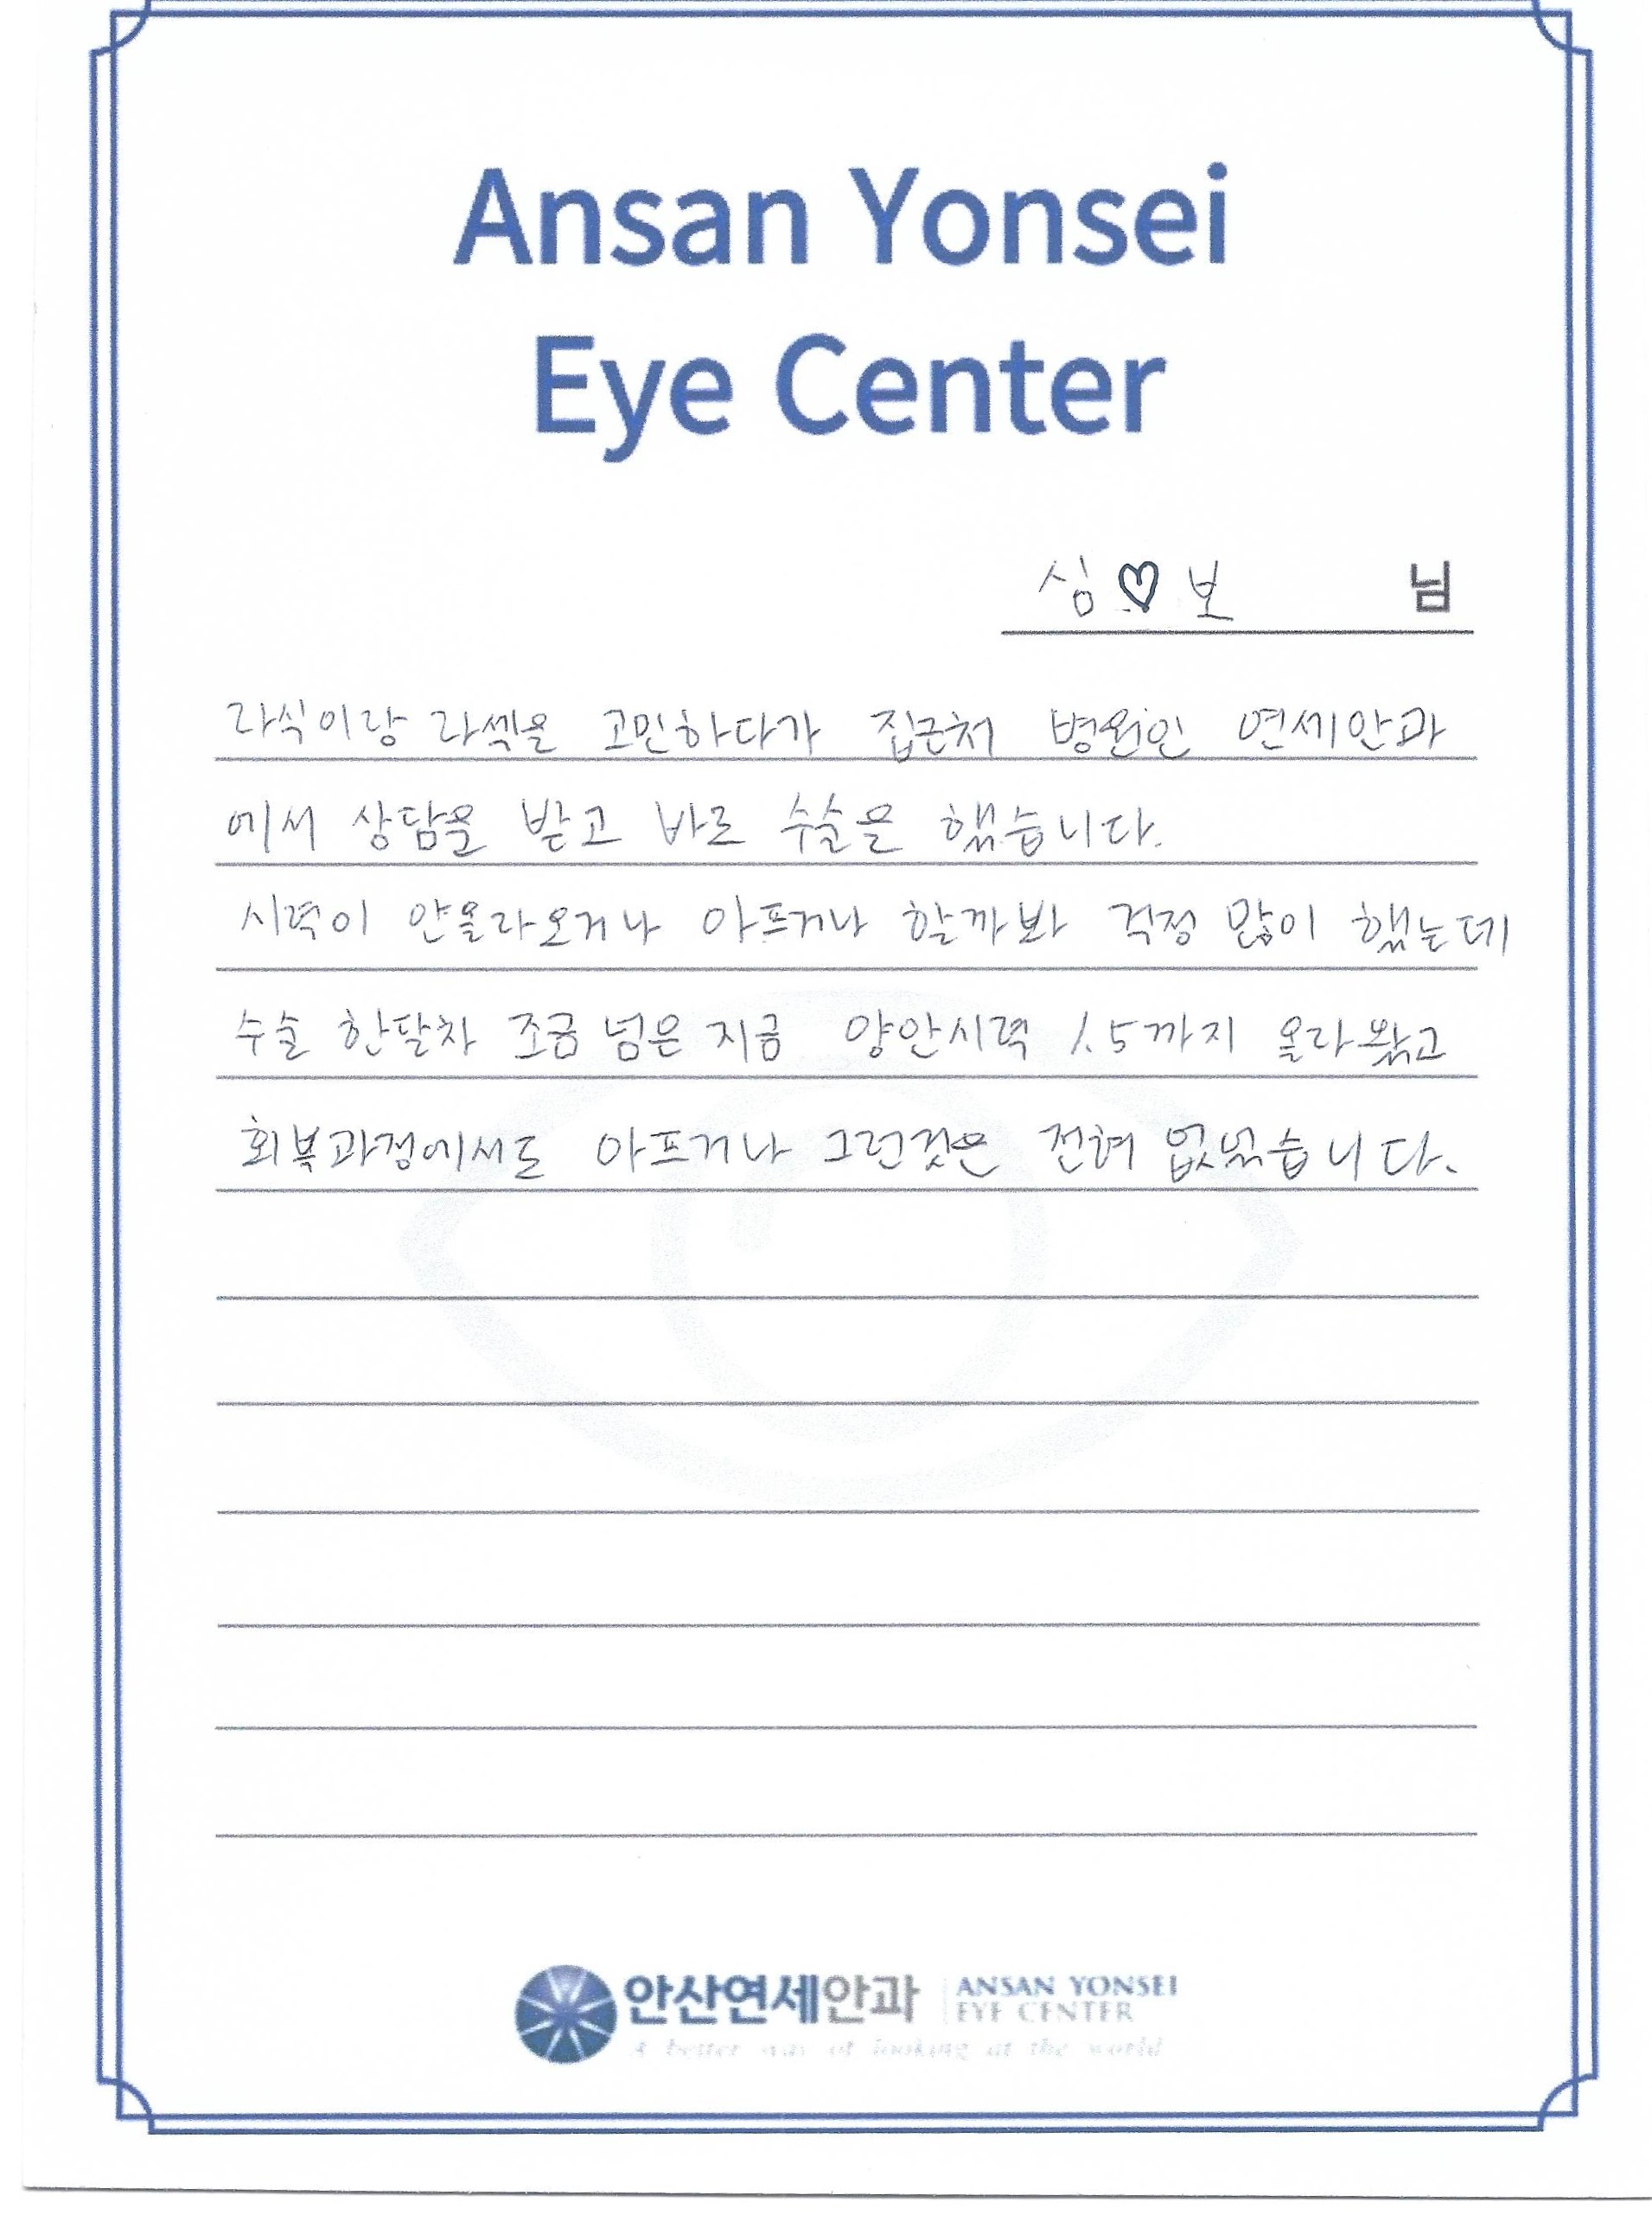 Ansan Yonsei
Eye Center
심♡보 님
라식이랑 라섹을 고민하다가 집근처 병원인 연세안과
에서 상담을 받고 바로 수술을 했습니다.
시력이 안올라오거나 아프거나 할까봐 걱정 많이 했는데
수술 한달차 조금 넘은 지금 양안시력 1.5까지 올라왔고
회복과정에서도 아프거나 그런것은 전혀 없었습니다.
안산연세안과 ANSAN YONSEI
EYE CENTER
A better way of looking at the world